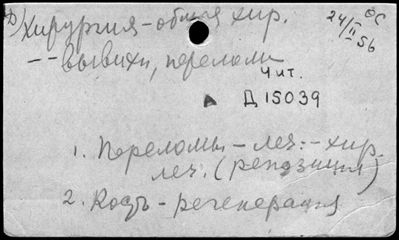 Д) Хирургия - общая хир.
ОС
24/II 56
-- вывихи, переломы
Чит.
Д 15039
1. Переломы - леч. - хир.
леч. (репозиция)
2. Кость - регенерация